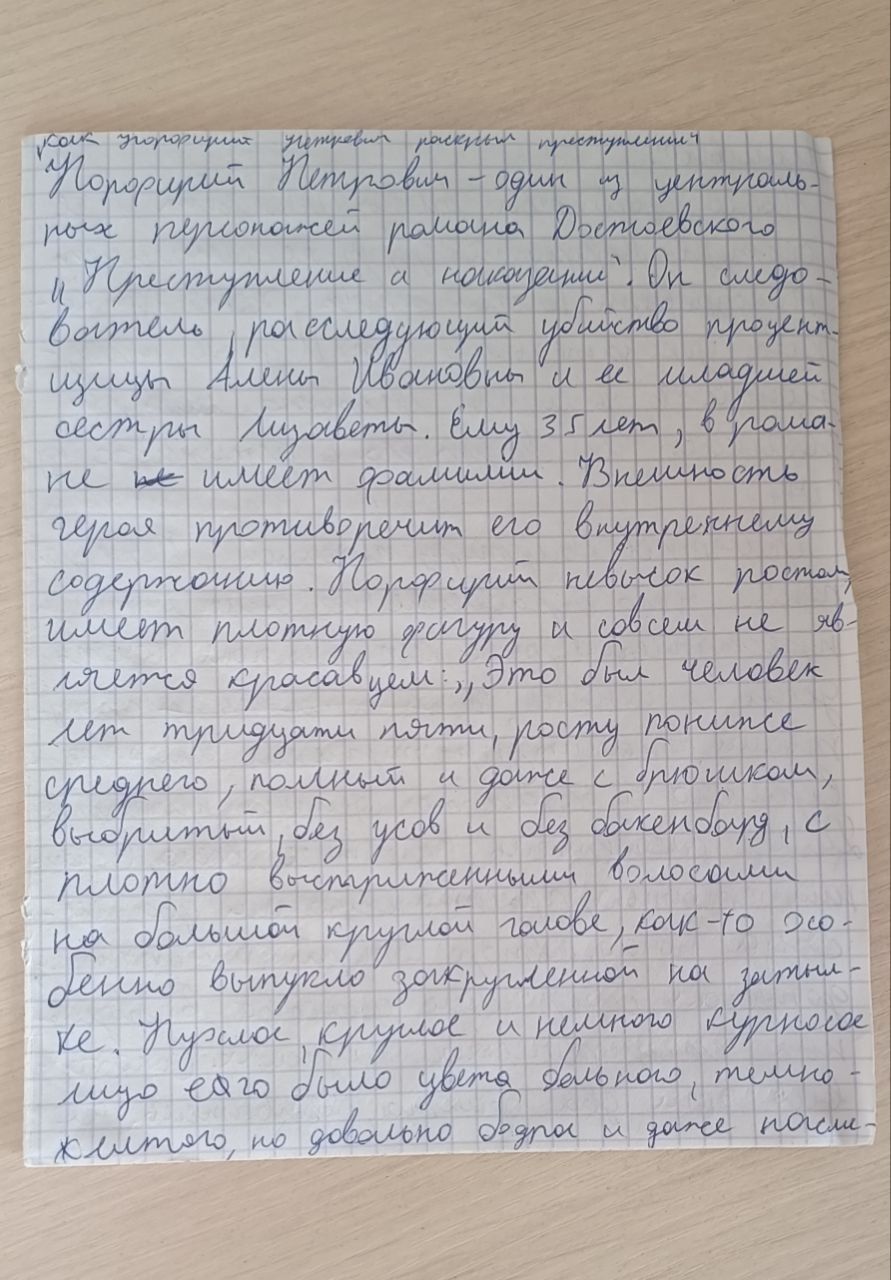 Как Порфирий Петрович раскрыл преступление
Порфирий Петрович – один из централь-
ных персонажей романа Достоевского
„Преступление и наказание". Он следо-
ватель, расследующий убийство процент-
щицы Алены Ивановны и ее младшей
сестры Лизаветы. Ему 35 лет, в рома-
не не имеет фамилии. Внешность
героя противоречит его внутреннему
содержанию. Порфирий невысок ростом,
имеет плотную фигуру и совсем не яв-
ляется красавцем: „Это был человек
лет тридцати пяти, росту пониже
среднего, полный и даже с брюшком,
выбритый, без усов и без бакенбард, с
плотно выстриженными волосами
на большой круглой голове, как-то осо-
бенно выпукло закругленной на затыл-
ке. Пухлое, круглое и немного курносое
лицо его было цвета больного, темно-
желтого, но довольно бодрое и даже насме-